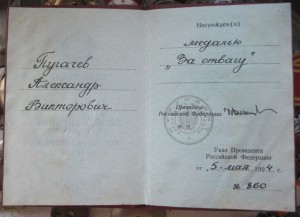 Пугачев
Александр
Викторович
Награжден(а)
медалью
„За отвагу"
Президент
Российской Федерации
М. П.
Указ Президента
Российской Федерации
от „5" мая 1994 г.
№ 860